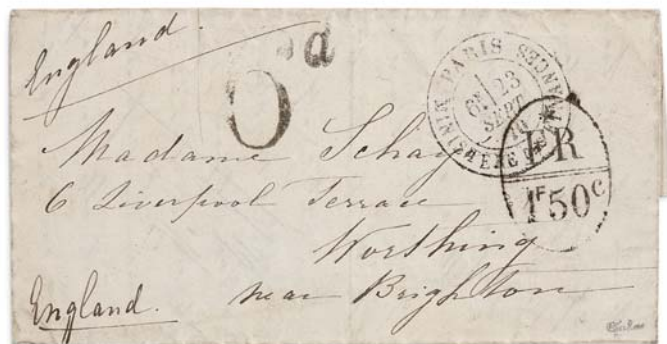 England.
6d
PARIS
MINISTERE DES FINANCES
6E 23
SEPT
FR
1F50C
Madame Schay
6 Liverpool Terrace
Worthing
near Brighton
England.